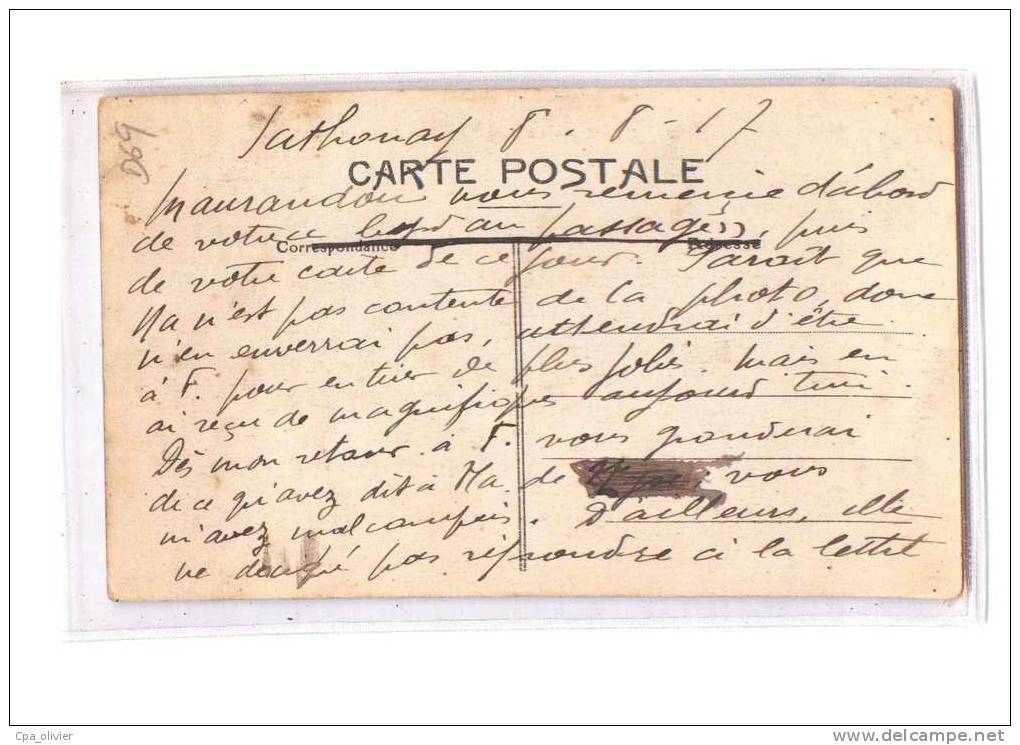 D69
Sathonay 8 . 8 - 17
CARTE POSTALE
vous remercie d'abord
de votre au passage, puis
Correspondance Adresse
de votre carte de ce jour. Parait que
Ma n'est pas contente de la photo, donc
n'en enverrai pas, attendrai d'être
à F. pour en tirer de plus jolies. Mais en
ai reçu de magnifiques aujourd'hui.
Dès mon retour à F. vous gronderai
de ce qu'avez dit à Ma. de vous
m'avez mal compris. D'ailleurs, elle
ne pas répondre à la lettre
Cpa_olivier
www.delcampe.net